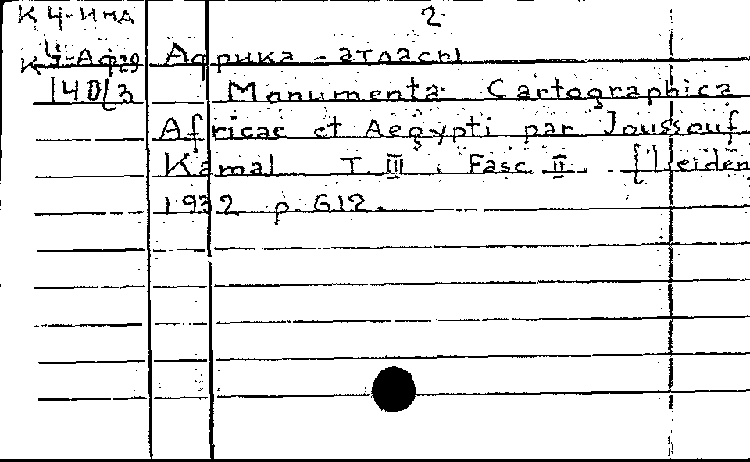 К 4-инд 2
К 4-Аф29 Африка - атласы
140/3 Monumenta Cartographica
Africae et Aegypti par Joussouf
Kamal T. III. Fasc. II. [Leiden
1932 p. 612.